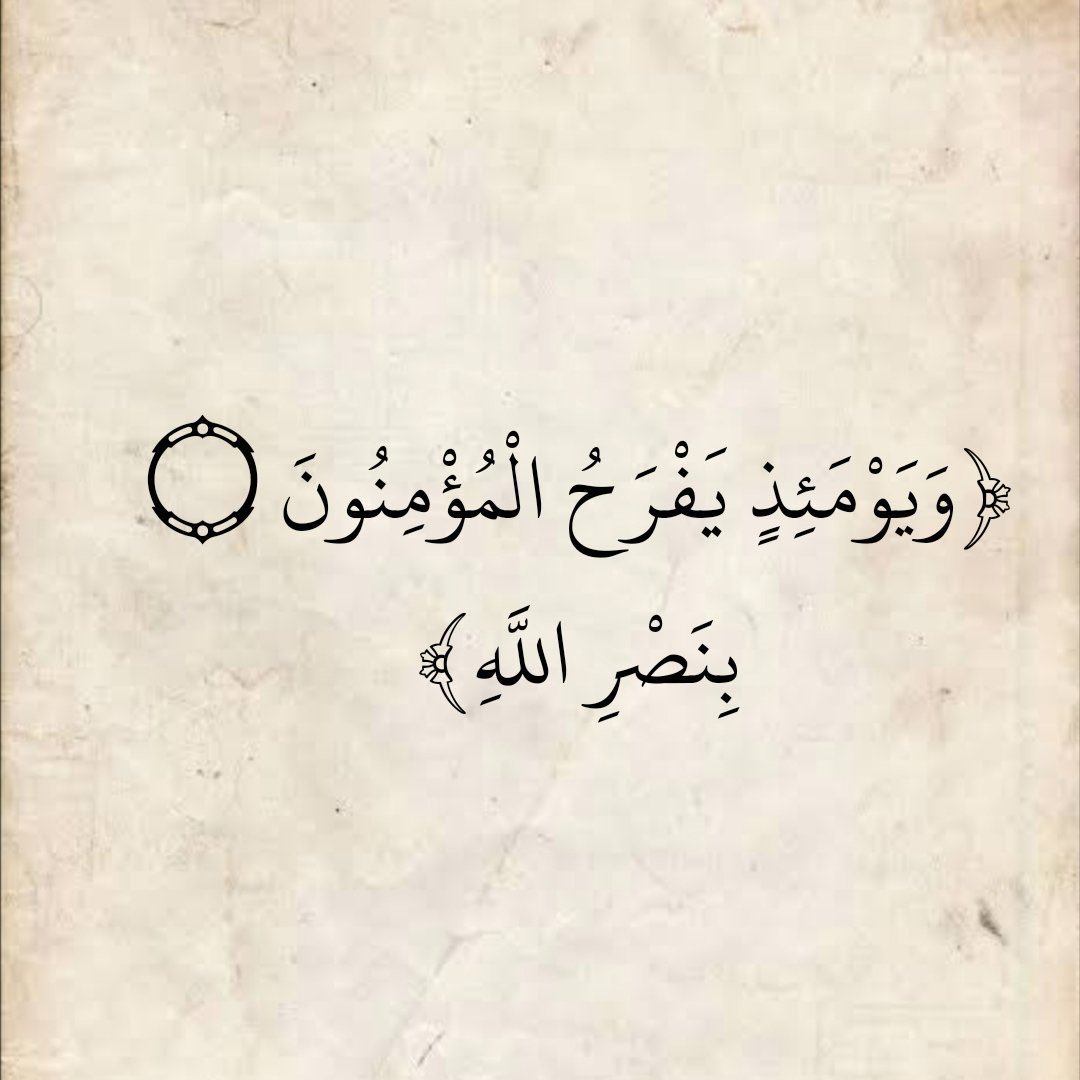 ﴿وَيَوْمَئِذٍ يَفْرَحُ الْمُؤْمِنُونَ ۝
بِنَصْرِ اللَّهِ﴾